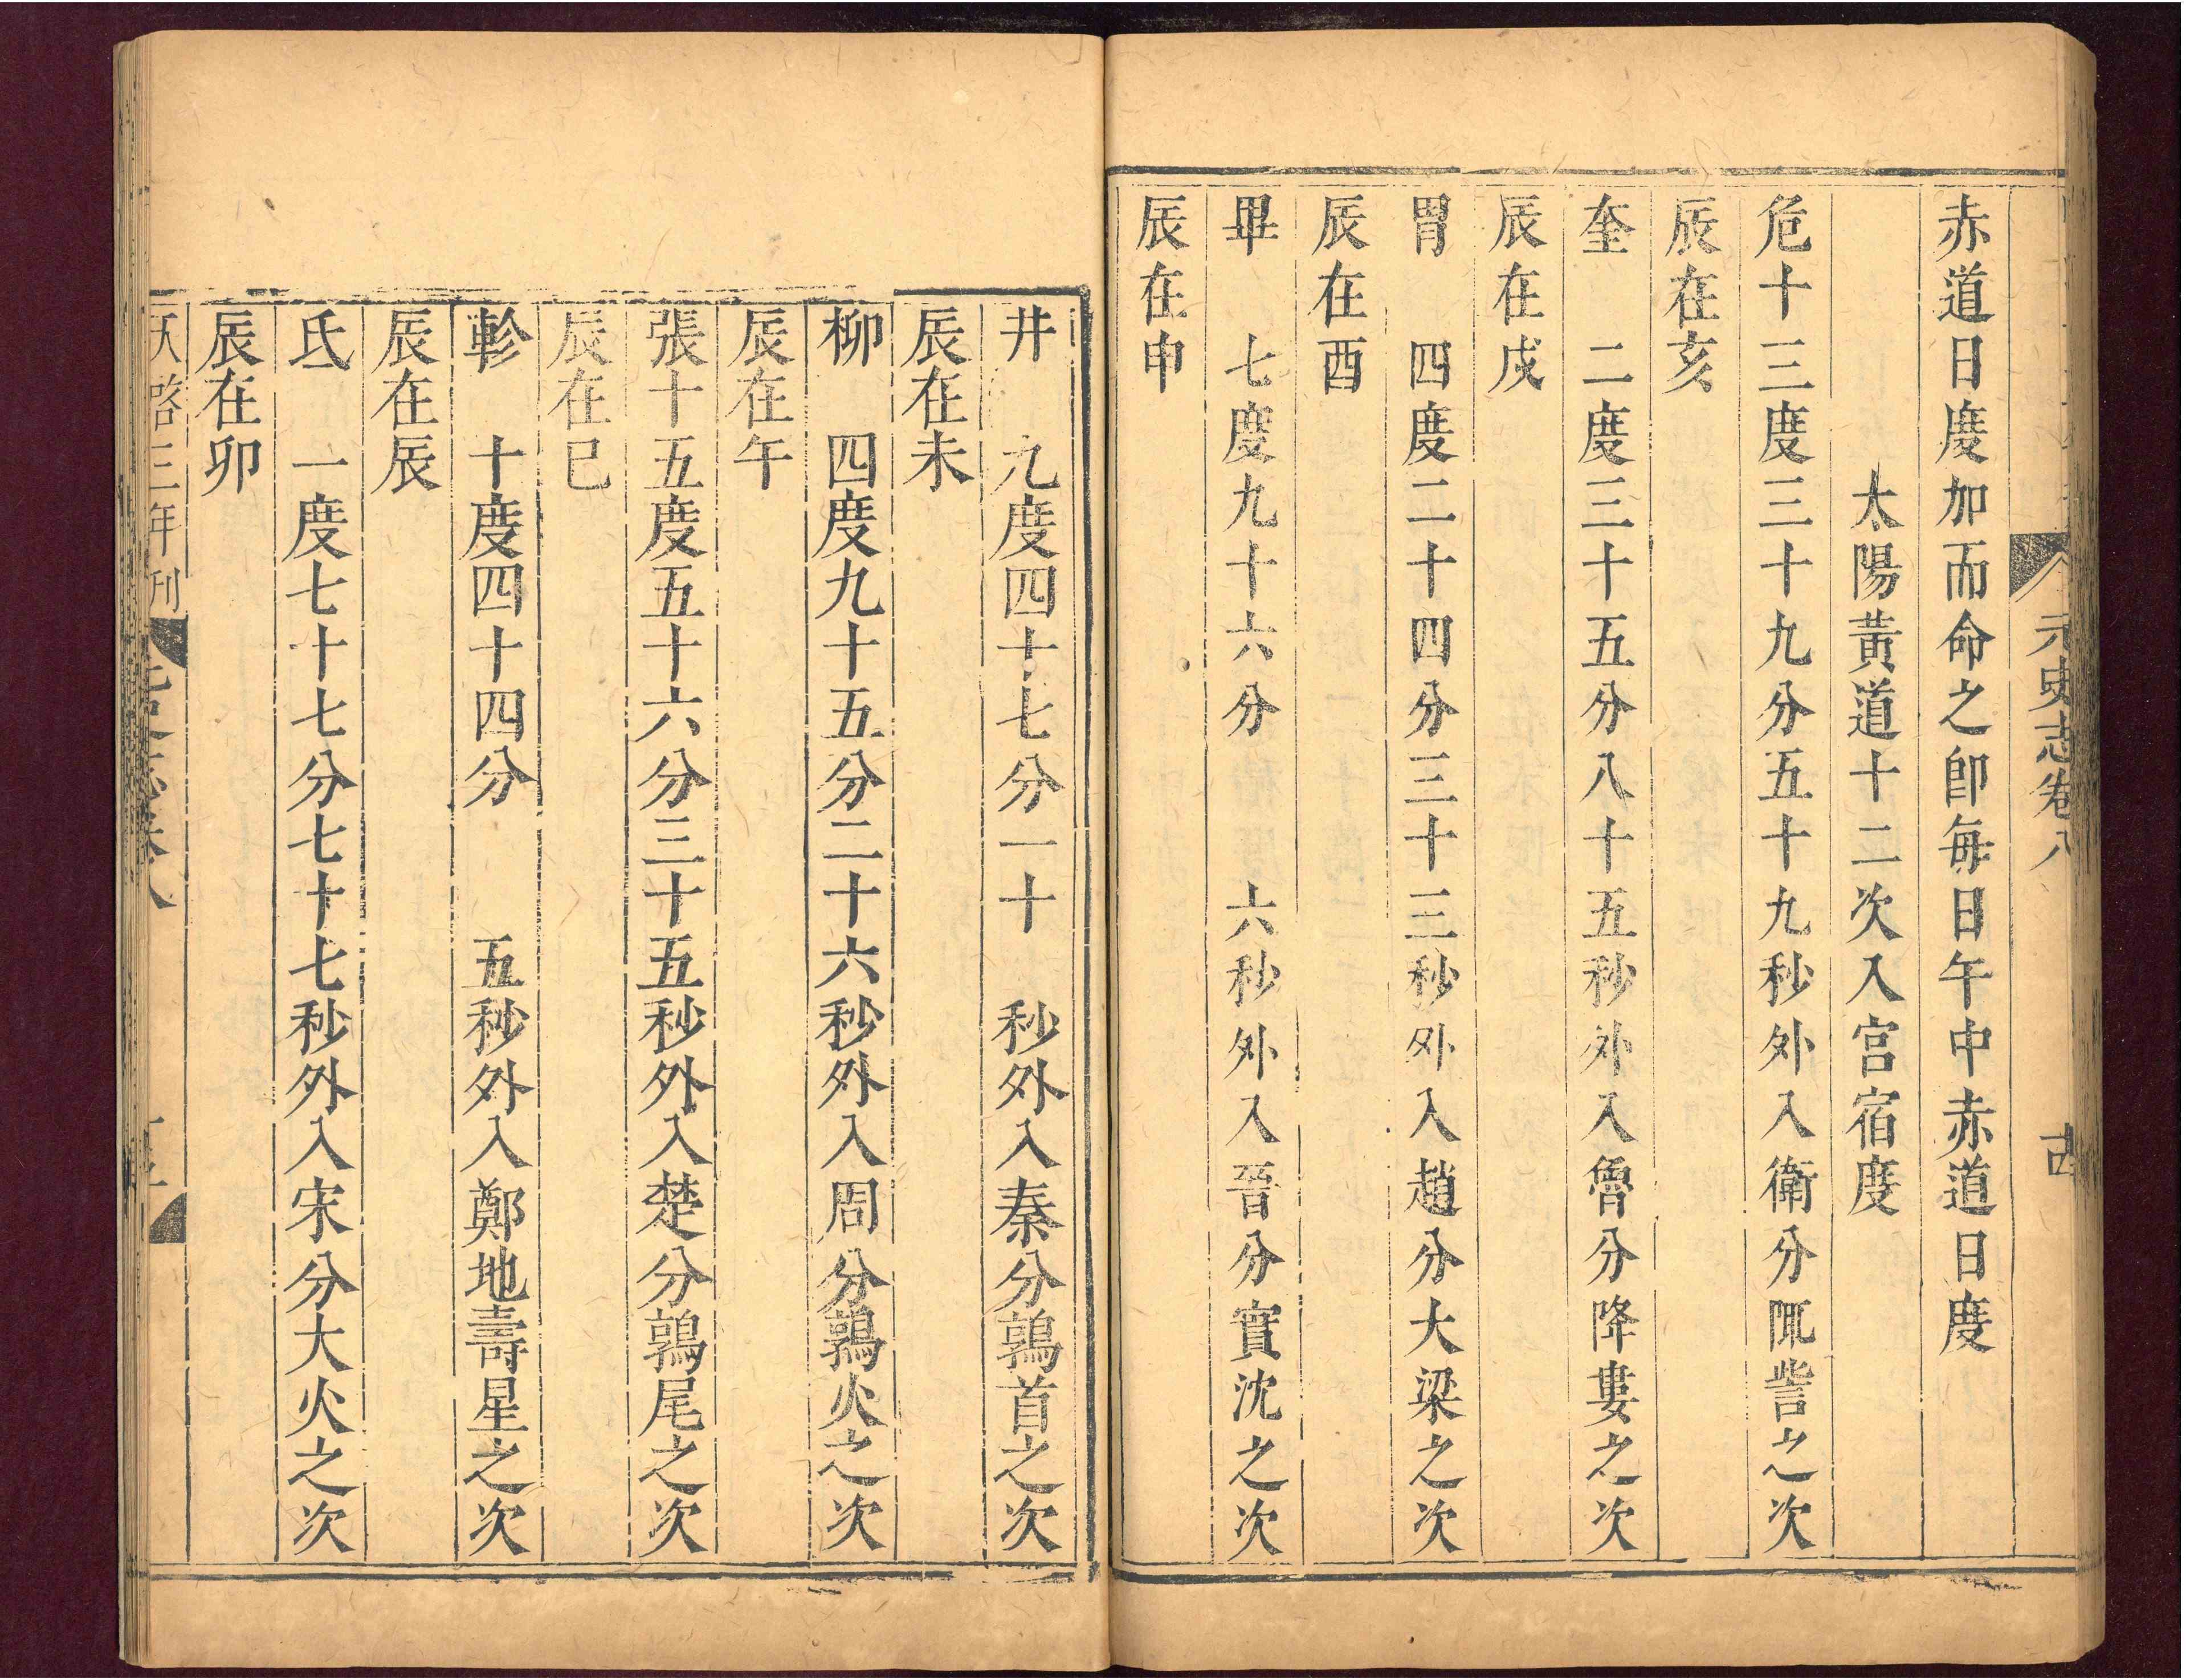 元史志卷八
赤道日度加而命之卽每日午中赤道日度
太陽黃道十二次入宮宿度
危十三度三十九分五十九秒外入衛分陬訾之次
辰在亥
奎　二度三十五分八十五秒外入魯分降婁之次
辰在戌
胃　四度二十四分三十三秒外入趙分大梁之次
辰在酉
畢　七度九十六分　　六秒外入晉分實沈之次
辰在申
井　九度四十七分一十　秒外入秦分鶉首之次
辰在未
柳　四度九十五分二十六秒外入周分鶉火之次
辰在午
張十五度五十六分三十五秒外入楚分鶉尾之次
辰在巳
軫　十度四十四分　　五秒外入鄭地壽星之次
辰在辰
氐　一度七十七分七十七秒外入宋分大火之次
辰在卯
三年刊